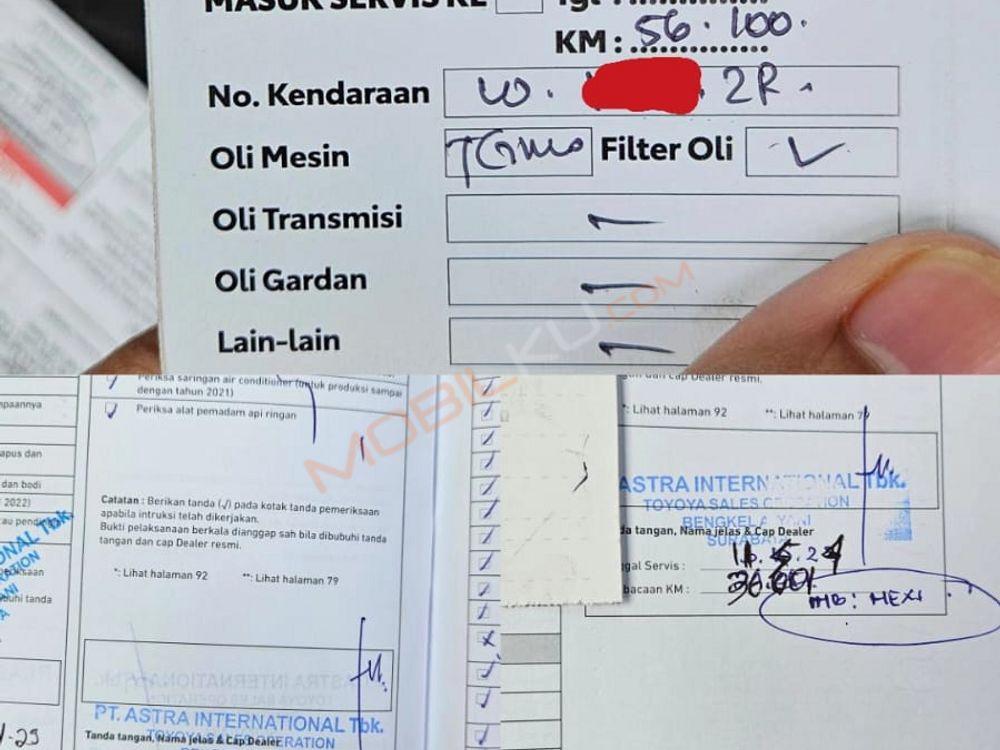 MASUK SERVIS KE Tgl :
KM : 56.100.
No. Kendaraan W. 2R.
Oli Mesin TGMO Filter Oli V
Oli Transmisi –
Oli Gardan –
Lain-lain –
MOBILKU.COM
Periksa saringan air conditioner (untuk produksi sampai
dengan tahun 2021)
Periksa alat pemadam api ringan
Catatan : Berikan tanda (√) pada kotak tanda pemeriksaan
apabila intruksi telah dikerjakan.
Bukti pelaksanaan berkala dianggap sah bila dibubuhi tanda
tangan dan cap Dealer resmi.
*: Lihat halaman 92 **: Lihat halaman 79
PT. ASTRA INTERNATIONAL Tbk.
TOYOTA SALES OPERATION
Tanda tangan, Nama jelas & Cap Dealer
apus dan
dan bodi
2022)
dan Cap Dealer resmi.
*: Lihat halaman 92 **: Lihat halaman 79
ASTRA INTERNATIONAL Tbk.
TOYOTA SALES OPERATION
BENGKEL A. YANI
SURABAYA
da tangan, Nama jelas & Cap Dealer
gal Servis :
bacaan KM :
MB : HEXI